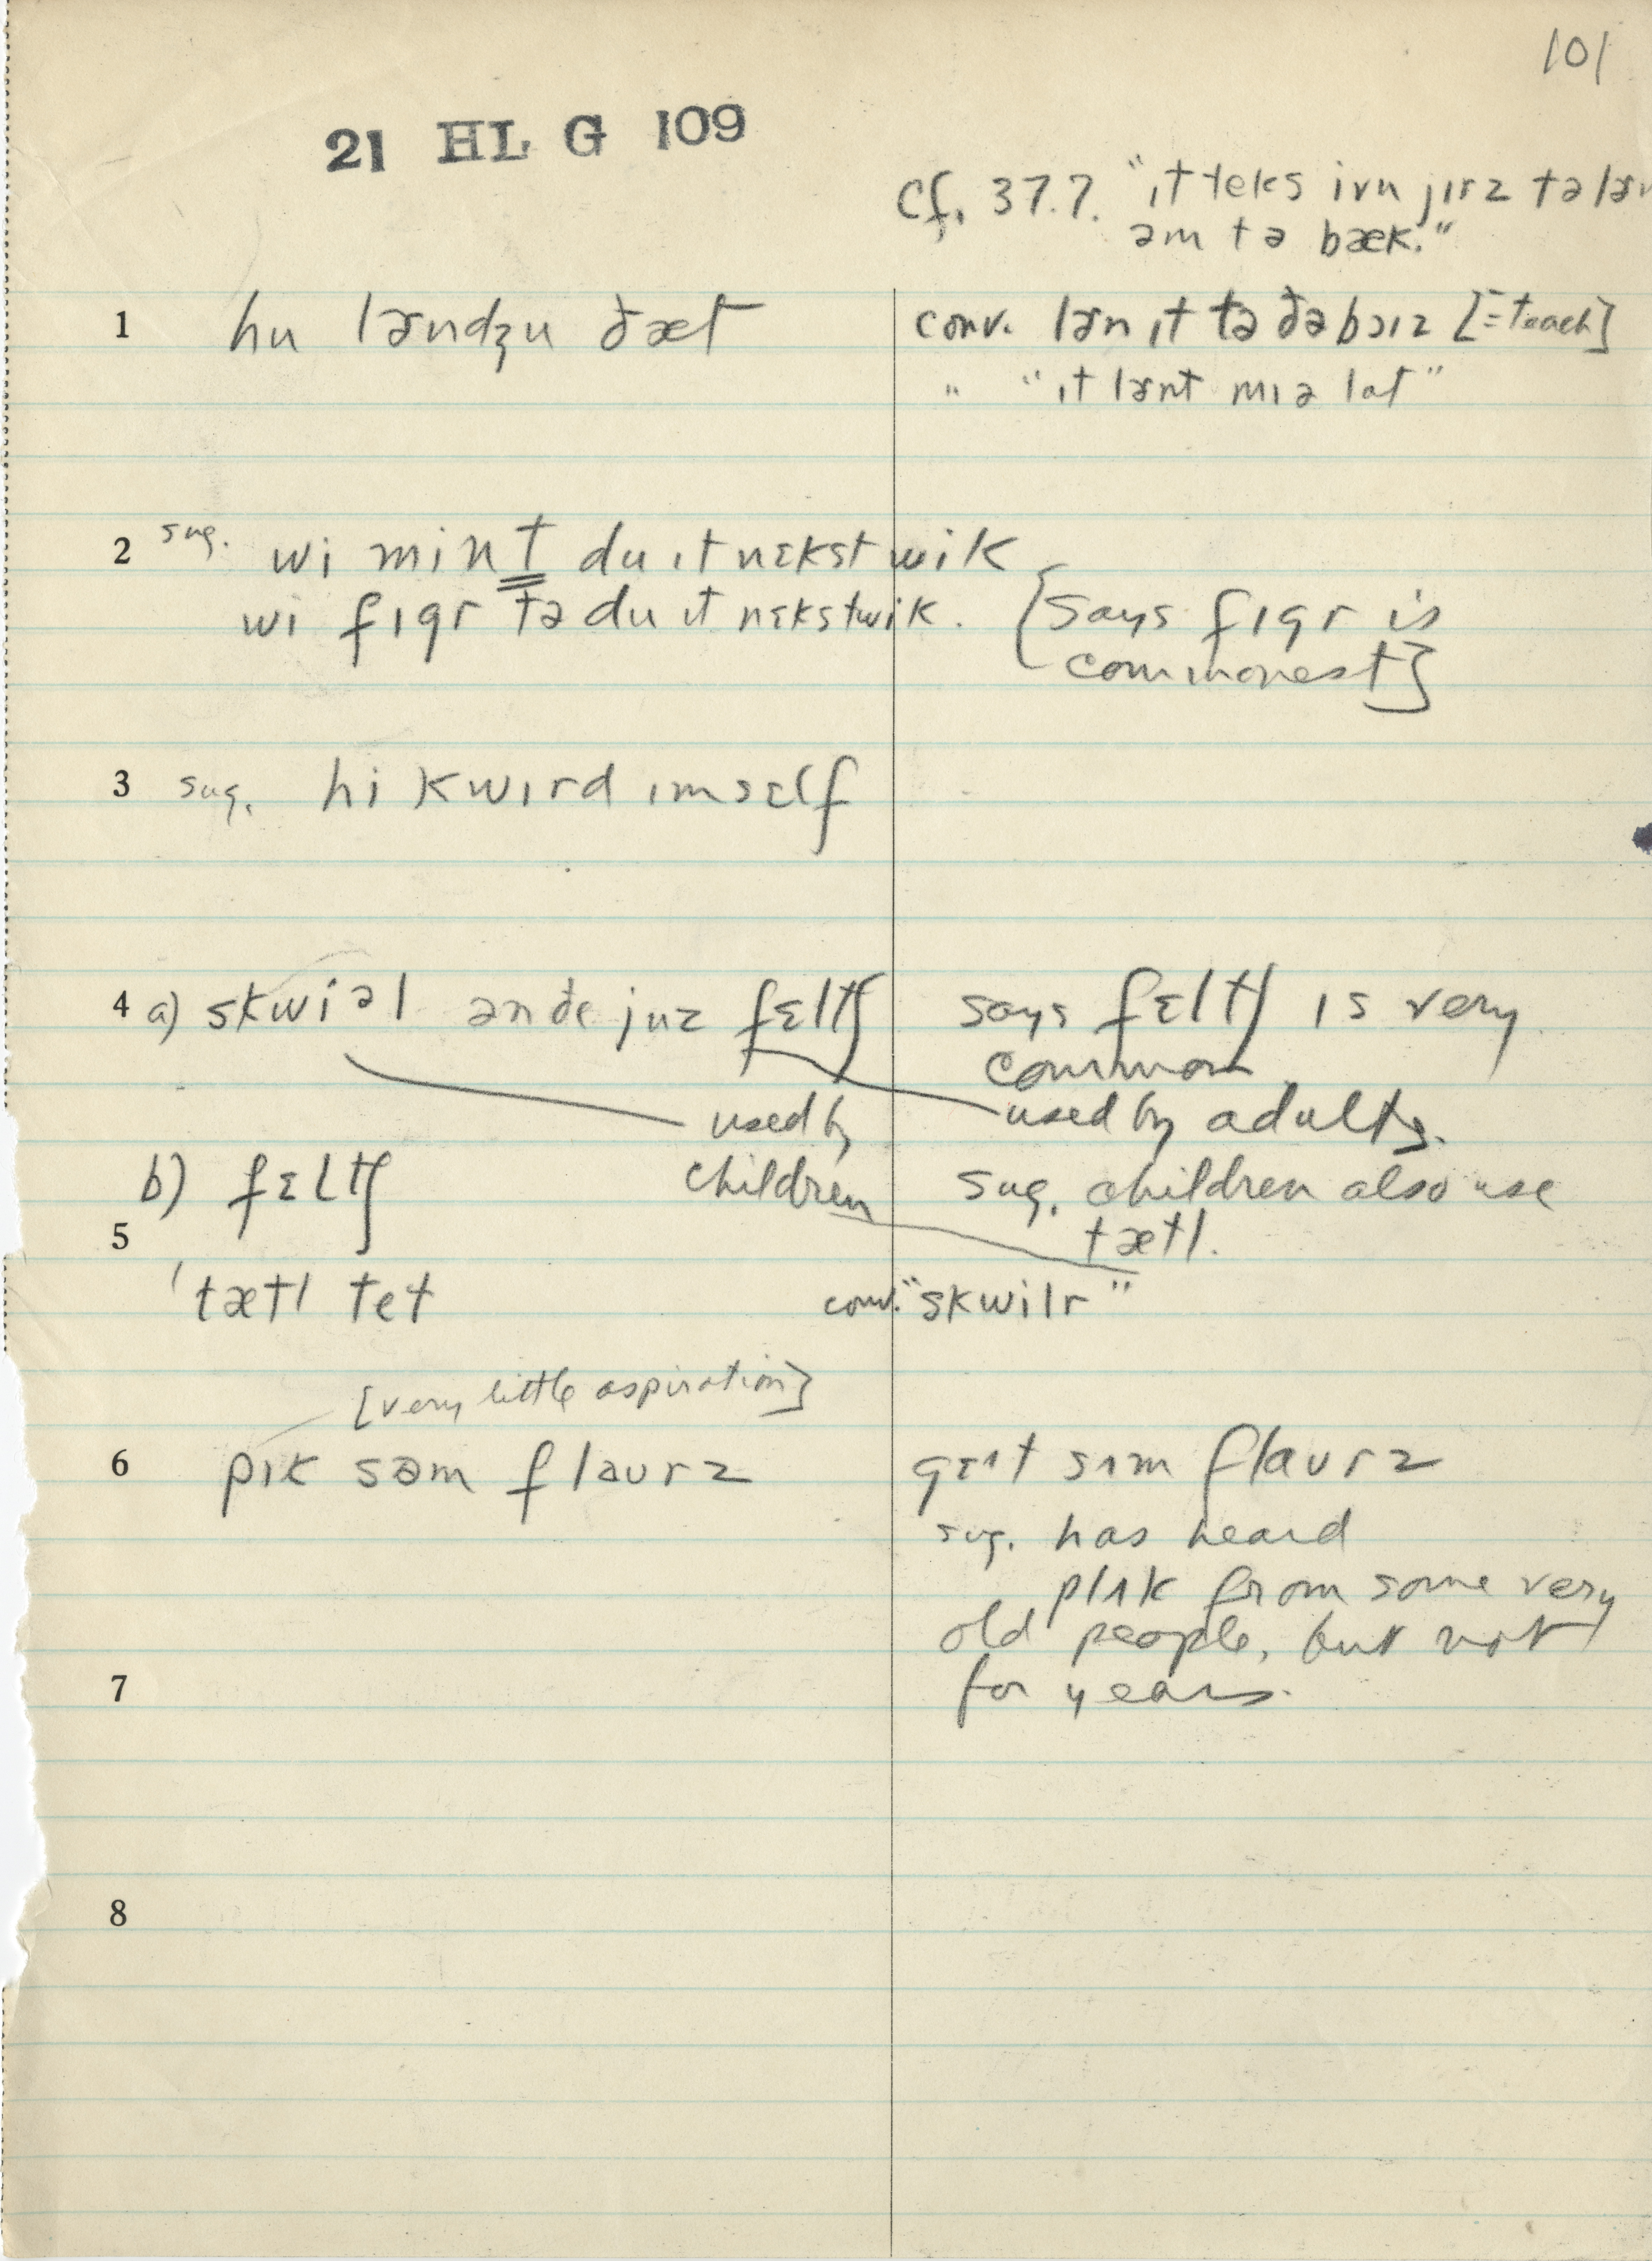 101
21 HL G 109
Cf. 37.7. "ɪt teks ivn jɪrz tə
əm tə bæk."
1 hu lɚndʒu ðæt
conv. lɚn ɪt tə ðə bɔɪz [= teach]
" "ɪt lɚnt mɪ ə lɑt"
2 sug. wi mint du ɪt nɛkst wik
wi fɪgr tə du ɪt nɛkst wik. [says fɪgr is
commonest]
3 sug. hi kwɪrd ɪmsɛlf
4 a) skwiəl ən ðe juz fɛltʃ
says fɛltʃ is very
common
used by
children
used by adults.
b) fɛltʃ
sug. children also use
tætl.
5
'tætl tet
conv. "skwilr"
[very little aspiration]
6 pɪk səm flaurz
gɛɪt sʌm flaurz
sug. has heard
plʌk from some very
old people, but not
for years.
7
8